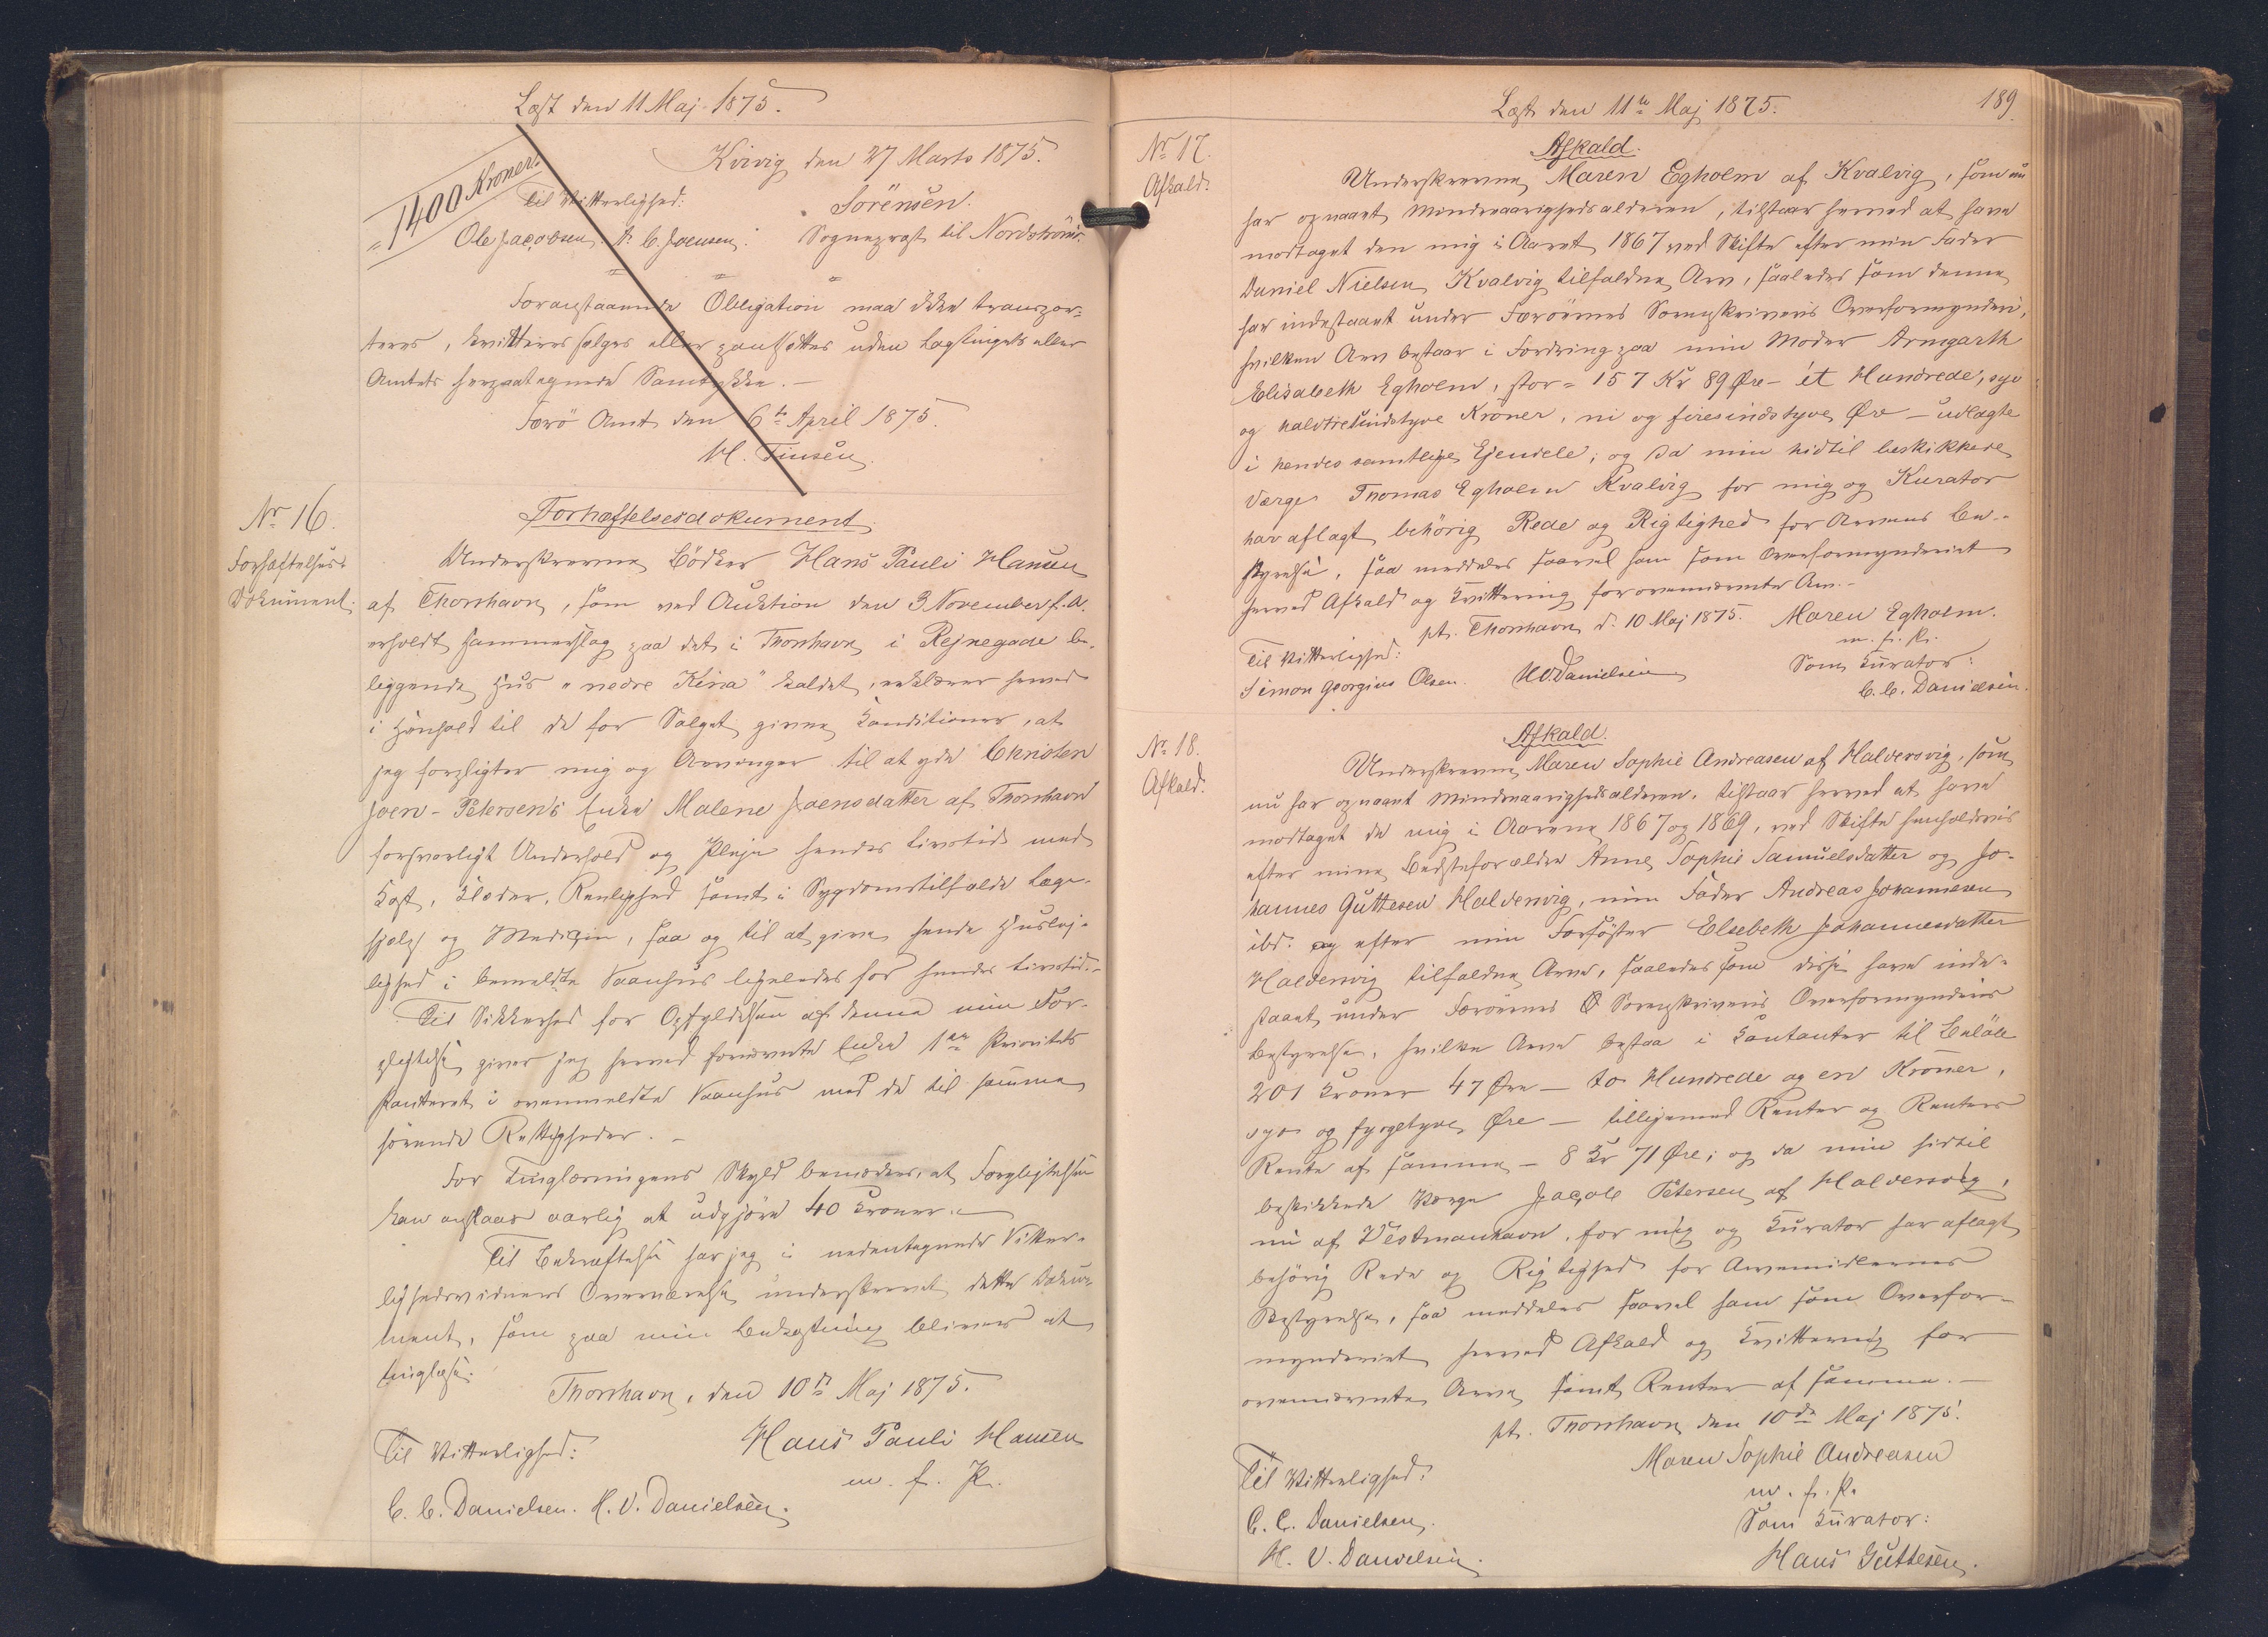 Læst den 11 Maj 1875.
Kvivig den 27 Marts 1875.
= 1400 Kroner.
Til Vitterlighed:
Sörensen.
Ole Jacobsen. C. Joensen.
Sognepræst til Nordströmö.
Foranstaaende Obligation maa ikke transpor-
teres, kvitteres sælges eller pantsættes uden Lagtingets eller
Amtets herpaategnede Samtykke.—
Færö Amt den 6te April 1875.
H. Finsen.
No 16.
Forhæftelses-
Dokument.
Forhæftelsesdokument.
Underskrevne Bödker Hans Pauli Hansen
af Thorshavn, som ved Auktion den 3 November f. A.
erholdt Hammerslag paa det i Thorshavn i Rejnegade be-
liggende Hus "nedre Kina" kaldet, erklærer herved
i Henhold til de for Salget givne Konditioner, at
jeg forpligter mig og Arvinger til at yde Christen
Joen-Petersen's Enke Malene Joensdatter af Thorshavn
forsvarligt Underhold og Pleje hendes Livstid med
Kost, Klæder, Renlighed samt i Sygdomstilfælde Læge-
hjælp og Medizin, saa og til at give hende Huslej-
lighed i bemeldte Vaanhus ligeledes for hendes Livstid.—
Til Sikkerhed for Opfyldelsen af denne min For-
pligtelse giver jeg herved fornævnte Enke 1ste Prioritets
Panteret i ovenmeldte Vaanhus med de til samme
hörende Rettigheder.—
For Tinglæsningens Skyld bemærkes, at Forpligtelsen
kan anslaas aarlig at udgjöre 40 Kroner.—
Til Bekræftelse har jeg i nedentegnede Vitter-
lighedsvidners Overværelse underskrevet dette Doku-
ment, som paa min Bekostning bliver at
tinglæse.
Thorshavn, den 10de Maj 1875.
Til Vitterlighed:
Hans Pauli Hansen
m. f. P.
C. C. Danielsen. H. V. Danielsen.
Læst den 11te Maj 1875.
189.
No 17.
Afkald.
Afkald.
Underskrevne Maren Egholm af Kvalvig, som nu
har opnaaet Mindreaarighedsalderen, tilstaar herved at have
modtaget den mig i Aaret 1867 ved Skifte efter min Fader
Daniel Nielsen Kvalvig tilfaldne Arv, saaledes som denne
har indestaaet under Færöernes Sorenskriveris Overformynderi,
hvilken Arv bestaar i Fordring paa min Moder Armgarth
Elisabeth Egholm, stor = 157 Kr 89 Øre – ét Hundrede, syv
og halvtresindstyve Kroner, ni og firesindstyve Øre – udlagte
i hendes samtlige Ejendele; og da min hidtil beskikkede
Værge Thomas Egholm Kvalvig for mig og Kurator
har aflagt behörig Rede og Rigtighed for Arvens Be-
styrelse, saa meddeles saavel ham som Overformynderiet
herved Afkald og Kvittering for ovennævnte Arv.—
pt. Thorshavn d. 10 Maj 1875. Maren Egholm.
m. f. P.
Til Vitterlighed:
Som Kurator:
Simon Georgius Olsen. H V Danielsen
C. C. Danielsen.
No 18.
Afkald.
Afkald.
Underskrevne Maren Sophie Andreasen af Haldersvig, som
nu har opnaaet Mindreaarighedsalderen, tilstaar herved at have
modtaget de mig i Aarene 1867 og 1869, ved Skifte henholdsvis
efter mine Bedsteforældre Anne Sophie Samuelsdatter og Jo-
hannes Guttesen Haldersvig, min Fader Andreas Johannesen
ibd. og efter min Farsöster Elsebeth Johannesdatter
Haldersvig tilfaldne Arve, saaledes som disse have inde-
staaet under Færöernes Sorenskriveris Overformynderis
Bestyrelse, hvilke Arve bestaa i Kontanter til Belöb
201 Kroner 47 Øre – to Hundrede og en Kroner,
syv og fyrgetyve Øre – tilligemed Renter og Renters
Rente af samme – 8 Kr 71 Øre; og da min hidtil
beskikkede Værge Jacob Petersen af Haldersvig,
nu af Vestmanhavn, for mig og Kurator har aflagt
behörig Rede og Rigtighed for Arvemidlernes
Bestyrelse, saa meddeles saavel ham som Overfor-
mynderiet herved Afkald og Kvittering for
ovennævnte Arve samt Renter af samme.—
pt. Thorshavn den 10de Maj 1875.
Maren Sophie Andreasen
Til Vitterlighed:
m. f. P.
C. C. Danielsen.
Som Kurator:
H. V. Danielsen.
Hans Guttesen.